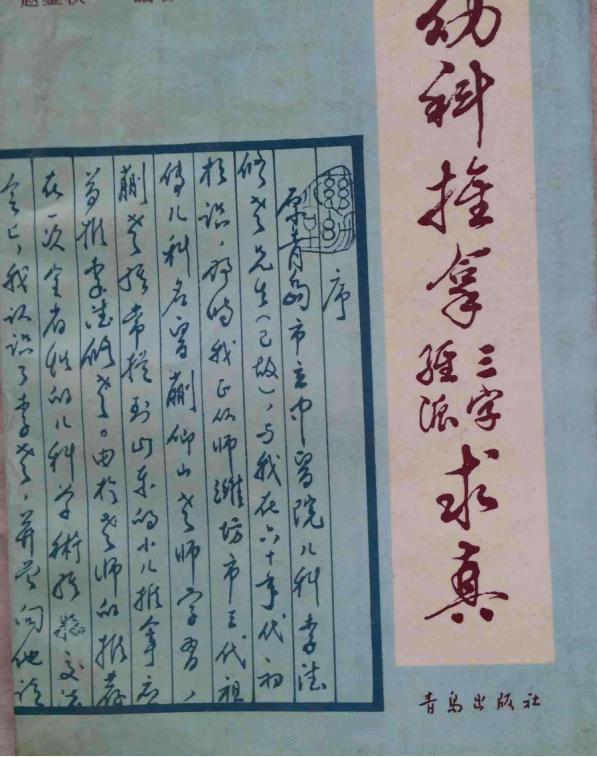 幼科推拿
三字
经派
求真
序
原青岛市立中医院儿科李德
修老先生(已故),与我在六十年代初
相识,那时我正从师潍坊市三代祖
传儿科名医蒯仰山老师学习,
蒯老经常提到山东的小儿推拿应
首推李德修老。由于老师的推荐
在一次全省性的儿科学術经验交流
会上,我认识了李老,并向他
青岛出版社